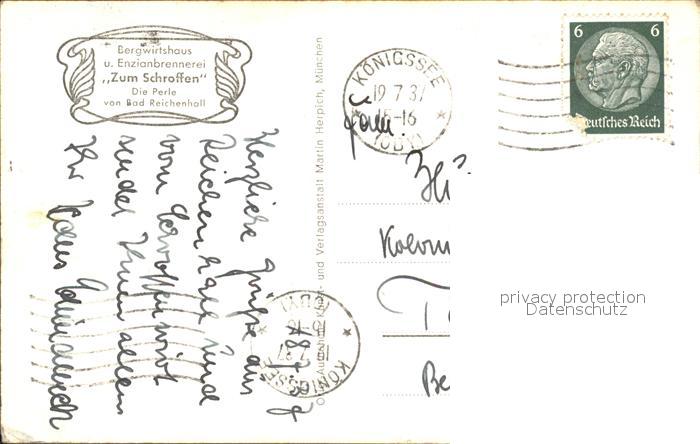 Bergwirtshaus
u. Enzianbrennerei
„Zum Schroffen"
Die Perle
von Bad Reichenhall
Herzliche Grüße aus
Reichenhall und
vom Schroffenwirt
sendet Ihnen allen
Ihr
Original-Aufnahme Kunst- und Verlagsanstalt Martin Herpich, München
KÖNIGSSEE
19 7 37
15-16
(OBY)
Fam.
Kolonn
T
Be
KÖNIGSSEE
19 7 37
(OBY)
6 6
Deutsches Reich
privacy protection
Datenschutz